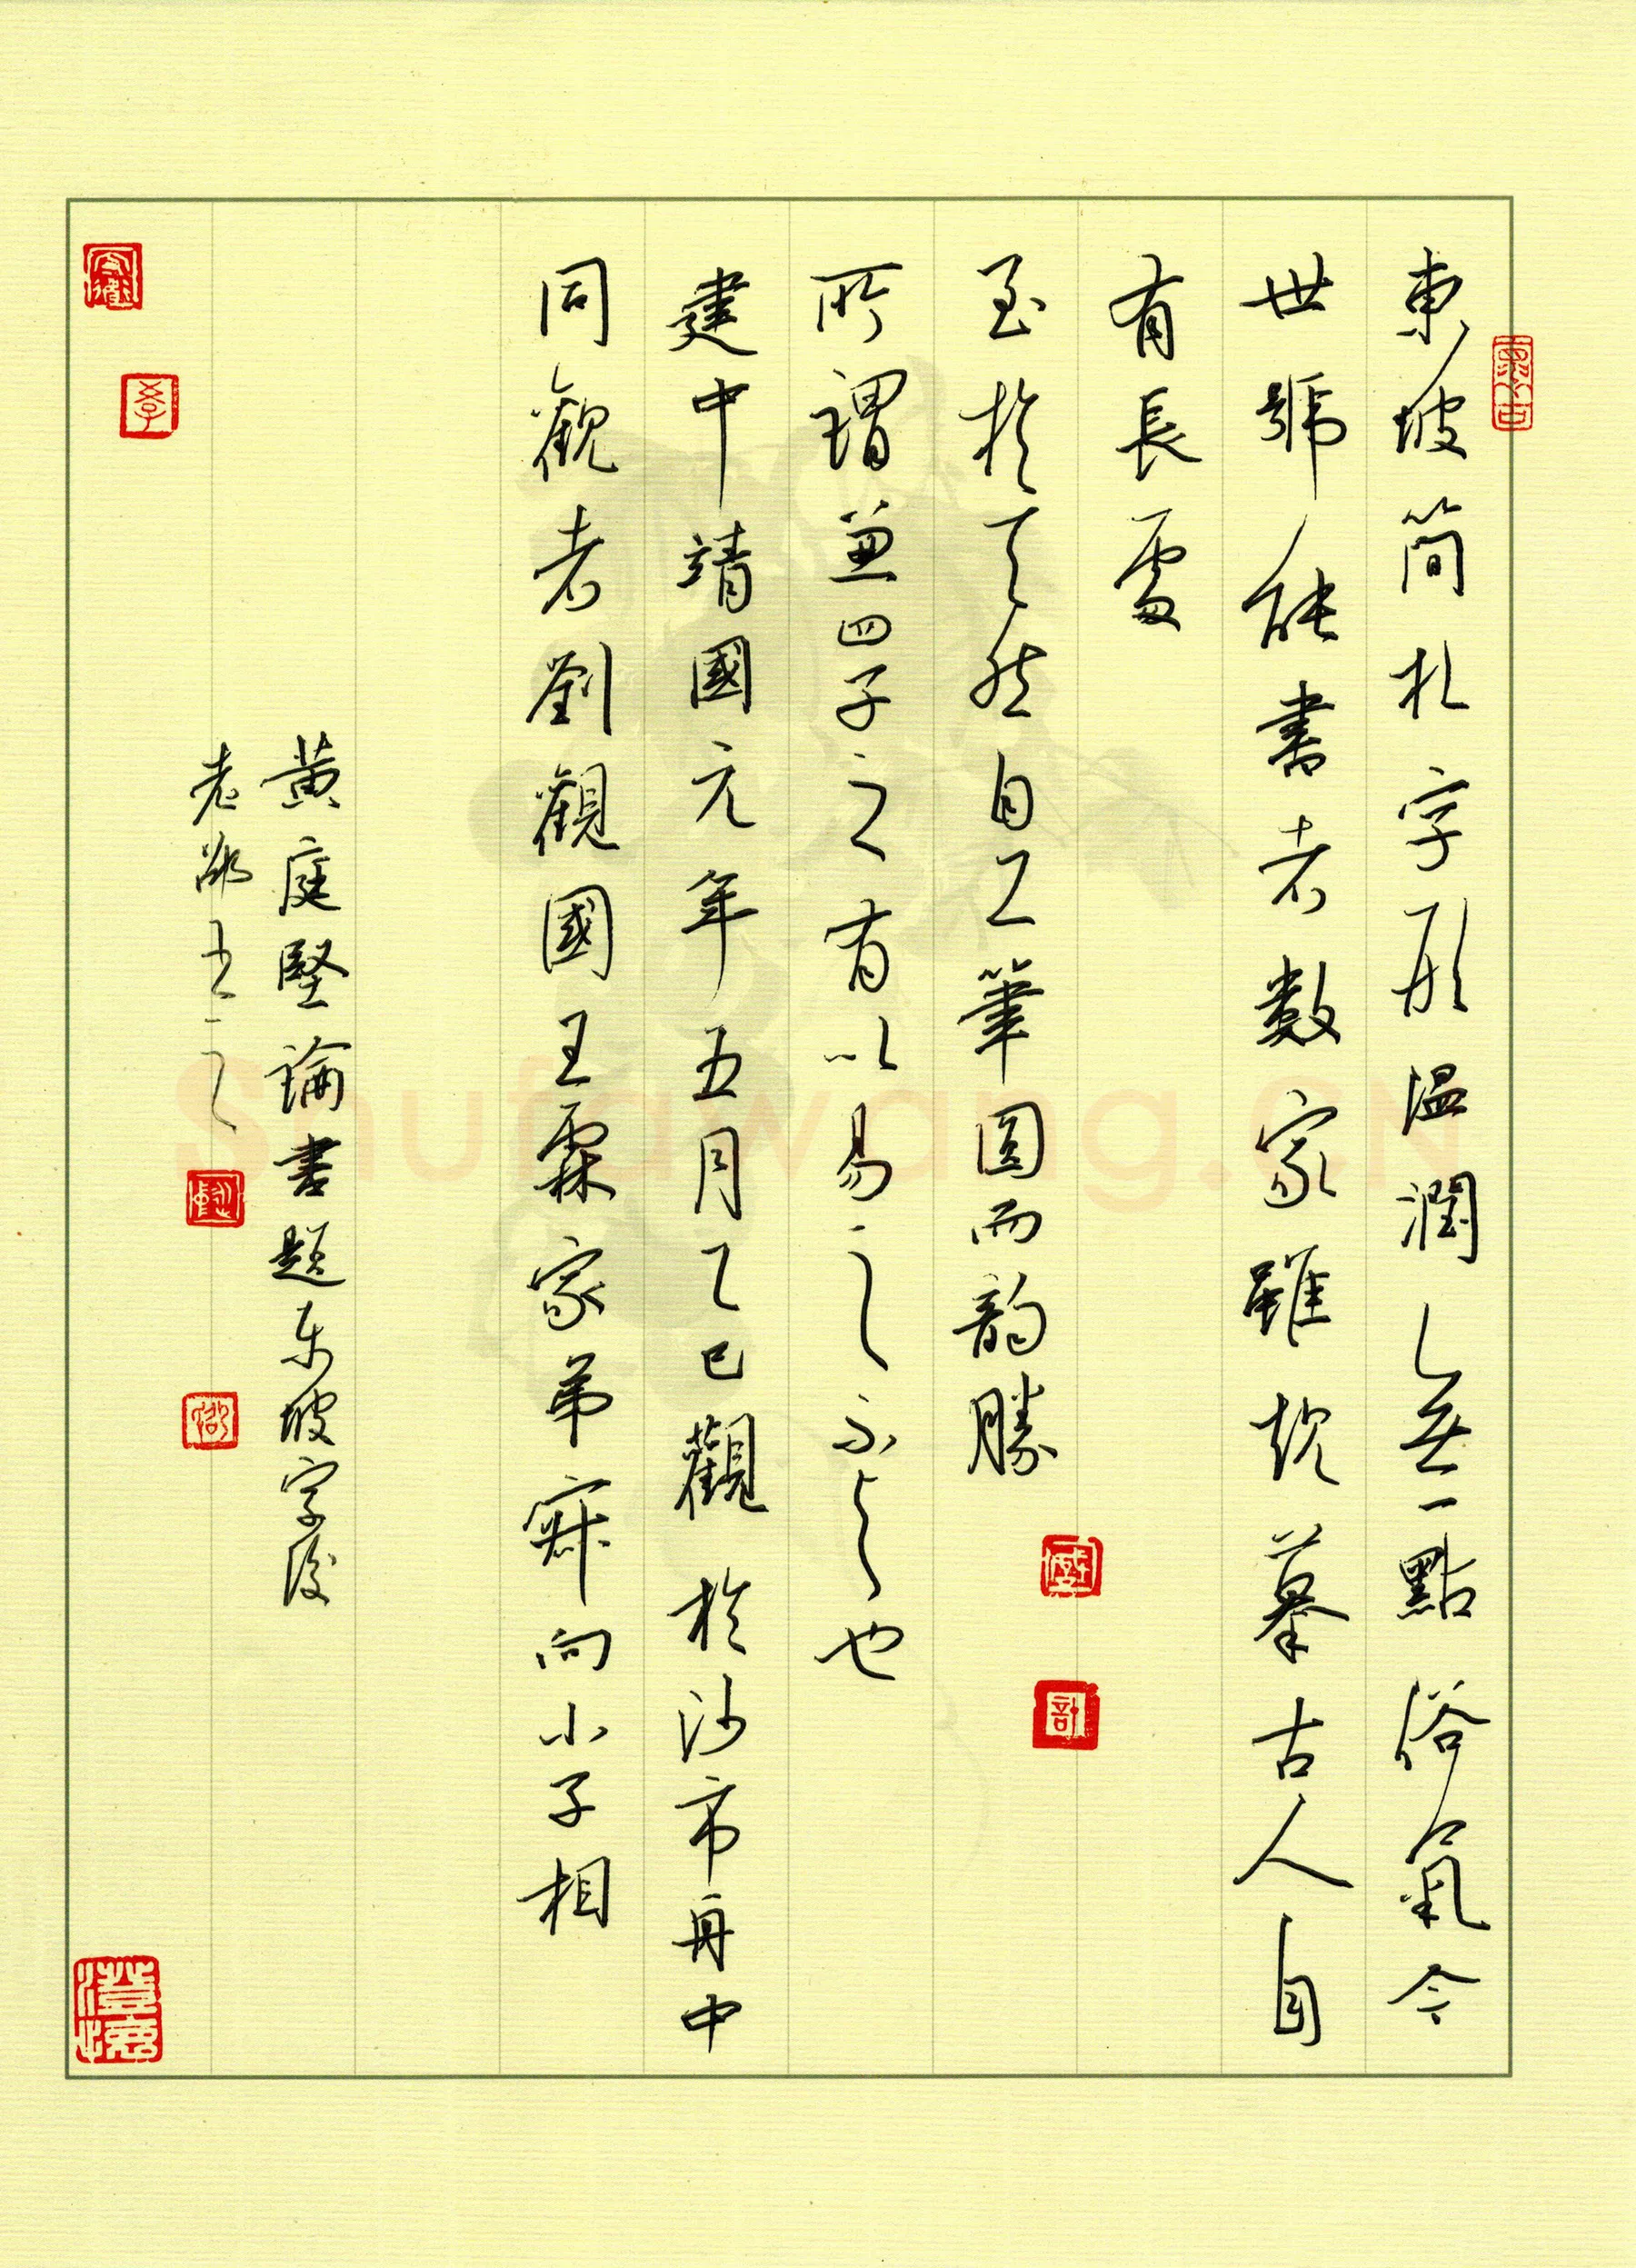 東坡簡札字形温潤無一點俗氣今
世號能書者數家雖規摹古人自
有長處
至於天然自工筆圓而韵勝
所謂兼四子之有以易之不与也
建中靖國元年五月乙巳觀於沙市舟中
同觀者劉觀國王霖家弟叔向小子相
黄庭堅論書題东坡字後
Shufawang.CN